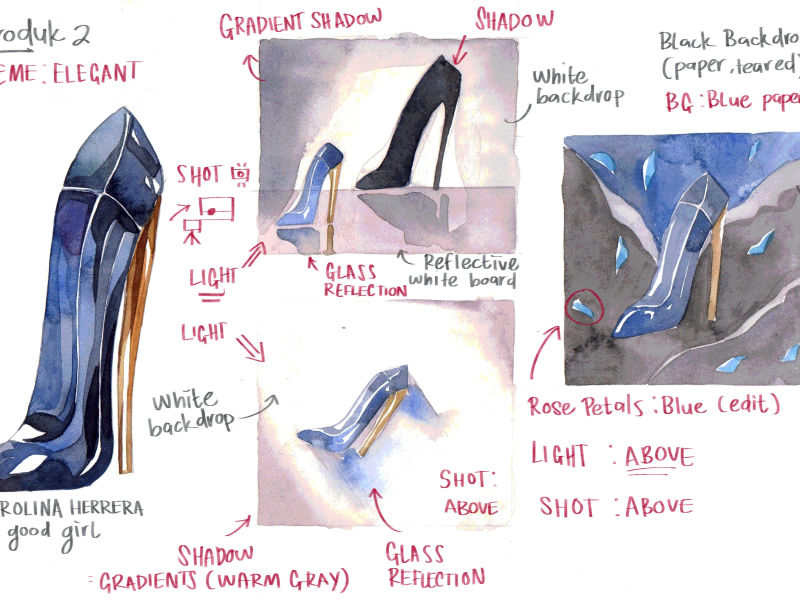 roduk 2
EME: ELEGANT
ROLINA HERRERA
good girl
GRADIENT SHADOW
SHADOW
White
backdrop
SHOT
LIGHT
GLASS
REFLECTION
Reflective
white board
LIGHT
White
backdrop
SHOT:
ABOVE
SHADOW
= GRADIENTS (WARM GRAY)
GLASS
REFLECTION
Black Backdro
(paper, teared)
BG: Blue paper
Rose Petals: Blue (edit)
LIGHT : ABOVE
SHOT : ABOVE